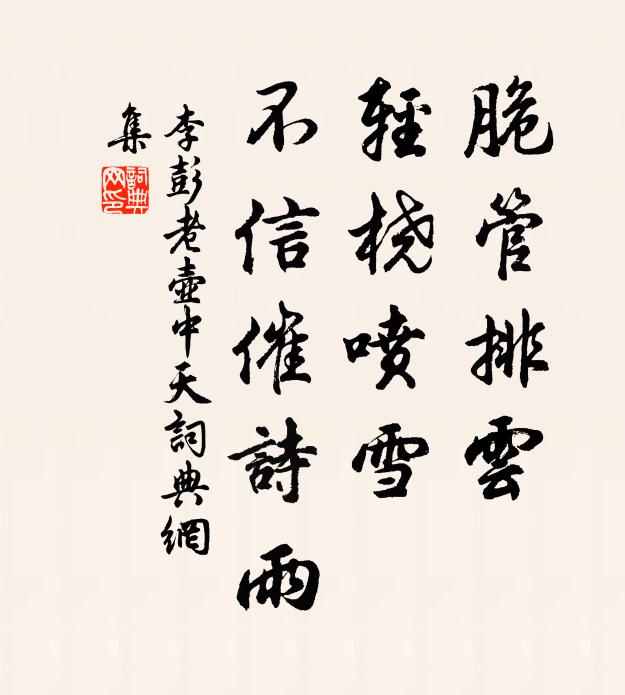 脆管排雲
輕橈噴雪
不信催詩雨
李彭老壺中天詞典網
集
詞典
网印